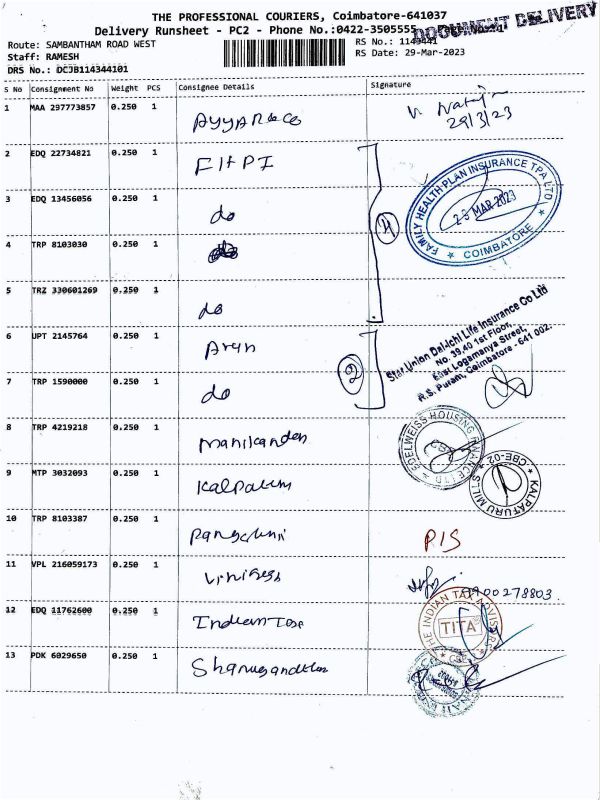 THE PROFESSIONAL COURIERS, Coimbatore-641037
Delivery Runsheet - PC2 - Phone No.:0422-3505555
DOCUMENT DELIVERY
Route: SAMBANTHAM ROAD WEST
RS No.: 1143441
Staff: RAMESH
RS Date: 29-Mar-2023
DRS No.: DCJB114344101
S No Consignment No Weight PCS Consignee Details Signature
1 MAA 297773857 0.250 1
29/3/23
2 EDQ 22734821 0.250 1 FHPI
3 EDQ 13456056 0.250 1 do
4 TRP 8103030 0.250 1
4
FAMILY HEALTH PLAN INSURANCE TPA LTD
MAR 2023
COIMBATORE
5 TRZ 330601269 0.250 1 do
6 UPT 2145764 0.250 1 Arun
7 TRP 1590000 0.250 1 do
2
Star Union Dai-ichi Life Insurance Co Ltd
No. 39,40 1st Floor,
East Logamanya Street,
R.S. Puram, Coimbatore - 641 002.
8 TRP 4219218 0.250 1 Manikanden
EDELWEISS HOUSING FINANCE LTD
CBE
9 MTP 3032093 0.250 1
KALPATURU MILLS
CBE-02
10 TRP 8103387 0.250 1
PIS
11 VPL 216059173 0.250 1
9900278803.
12 EDQ 11762600 0.250 1
THE INDIAN TAX ADVISERS
TITA
13 PDK 6029650 0.250 1